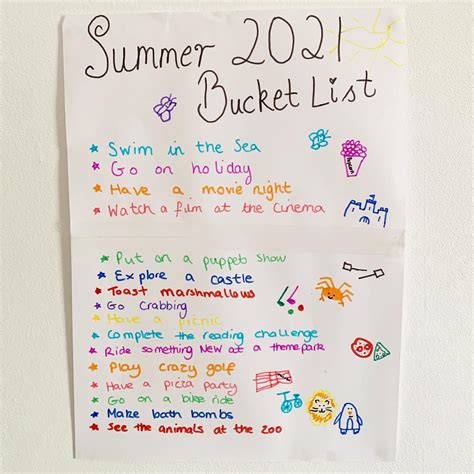 Summer 2021
Bucket List
Swim in the Sea
Go on holiday
Have a movie night
Watch a film at the cinema
Put on a puppet show
Explore a castle
Toast marshmallows
Go Crabbing
Have a picnic
Complete the reading challenge
Ride something NEW at a themepark
Play crazy golf
Have a pizza party
Go on a bike ride
Make bath bombs
See the animals at the zoo